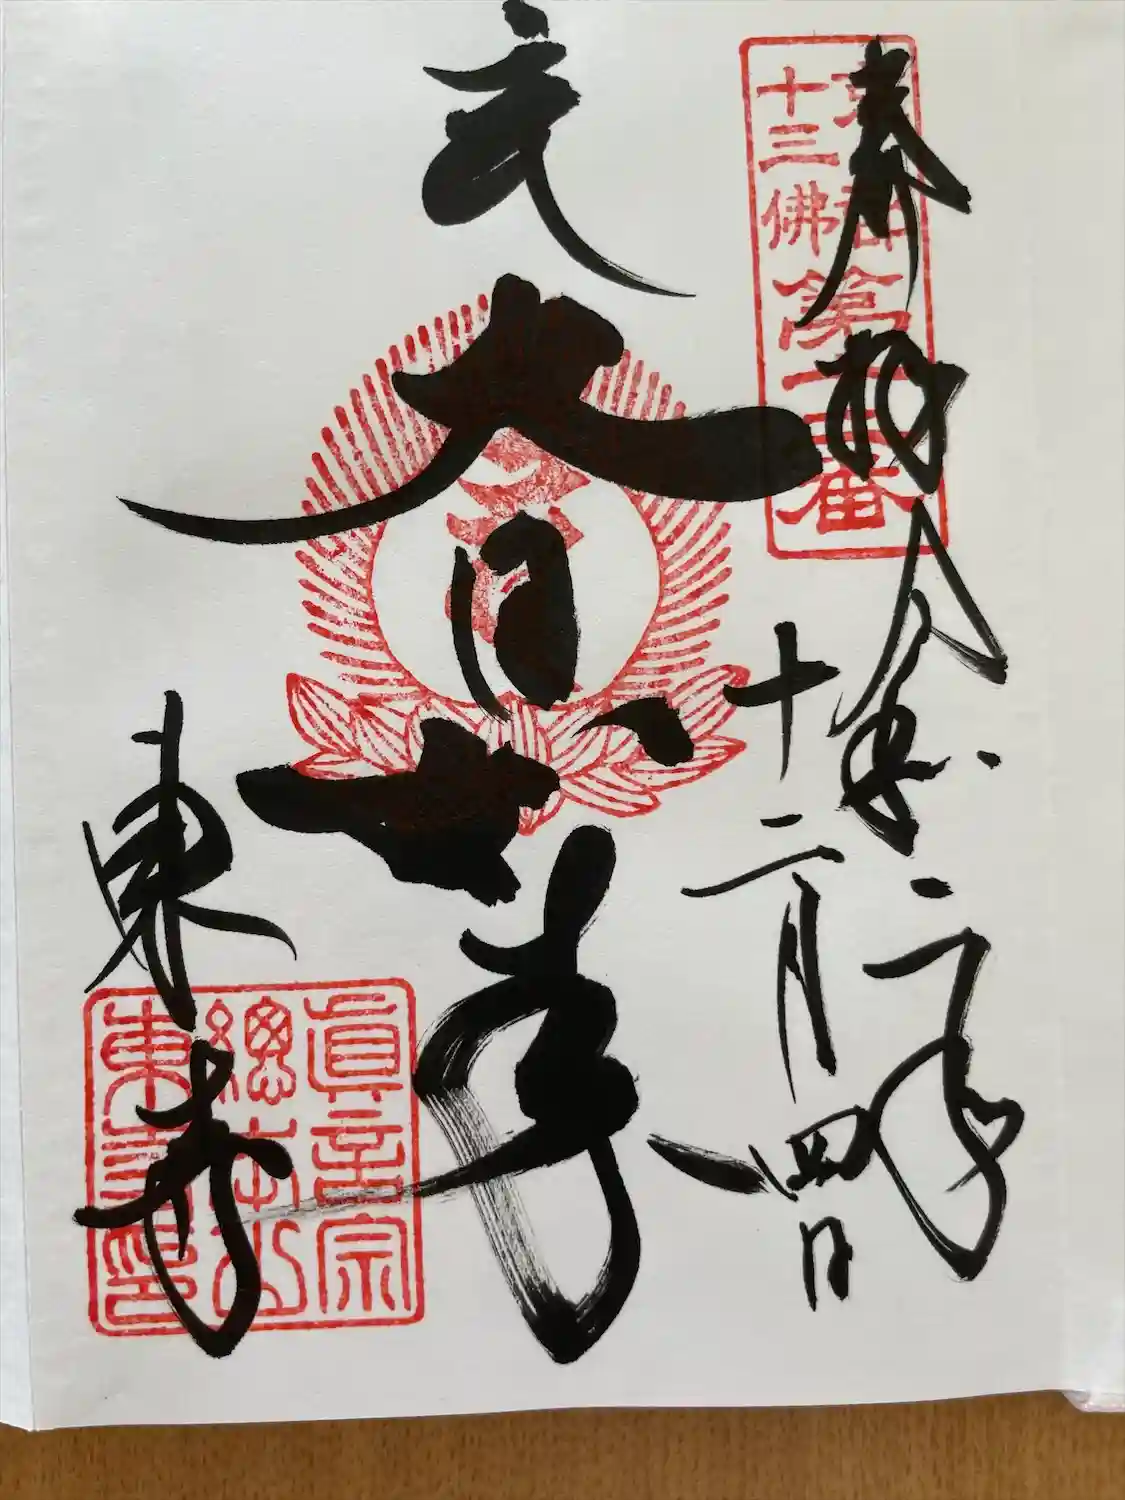 京都
十三佛
第十二番
奉拝 令和二年
十二月四日
大日如来
東寺
眞言宗
總本山
東寺印